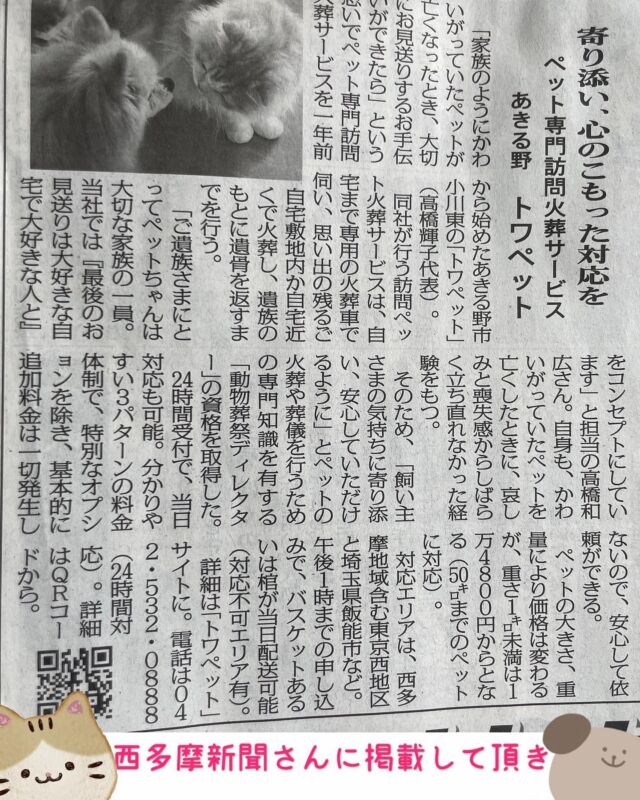 寄り添い、心のこもった対応を
ペット専門訪問火葬サービス
あきる野 トワペット
「家族のようにかわ
いがっていたペットが
亡くなったとき、大切
にお見送りするお手伝
いができたら」という
思いでペット専門訪問
火葬サービスを一年前
から始めたあきる野市
小川東の「トワペット」
(高橋輝子代表)。
同社が行う訪問ペッ
ト火葬サービスは、自
宅まで専用の火葬車で
伺い、思い出の残るご
自宅敷地内か自宅近
くで火葬し、遺族の
もとに遺骨を返すま
でを行う。
「ご遺族さまにと
ってペットちゃんは
大切な家族の一員。
当社では『最後のお
見送りは大好きな自
宅で大好きな人と』
をコンセプトにしてい
ます」と担当の高橋和
広さん。自身も、かわ
いがっていたペットを
亡くしたときに、哀し
みと喪失感からしばら
く立ち直れなかった経
験をもつ。
そのため、「飼い主
さまの気持ちに寄り添
い、安心していただけ
るように」とペットの
火葬や葬儀を行うため
の専門知識を有する
「動物葬祭ディレクタ
ー」の資格を取得した。
24時間受付で、当日
対応も可能。分かりや
すい3パターンの料金
体制で、特別なオプシ
ョンを除き、基本的に
追加料金は一切発生し
ないので、安心して依
頼ができる。
ペットの大きさ、重
量により価格は変わる
が、重さ1㌔未満は1
万4800円からとな
る(50㌔までのペット
に対応)。
対応エリアは、西多
摩地域含む東京西地区
と埼玉県飯能市など。
午後1時までの申し込
みで、バスケットある
いは棺が当日配送可能
(対応不可エリア有)。
詳細は「トワペット」
サイトに。電話は04
2・532・0888
(24時間対
応)。詳細
はQRコー
ドから。
西多摩新聞さんに掲載して頂き